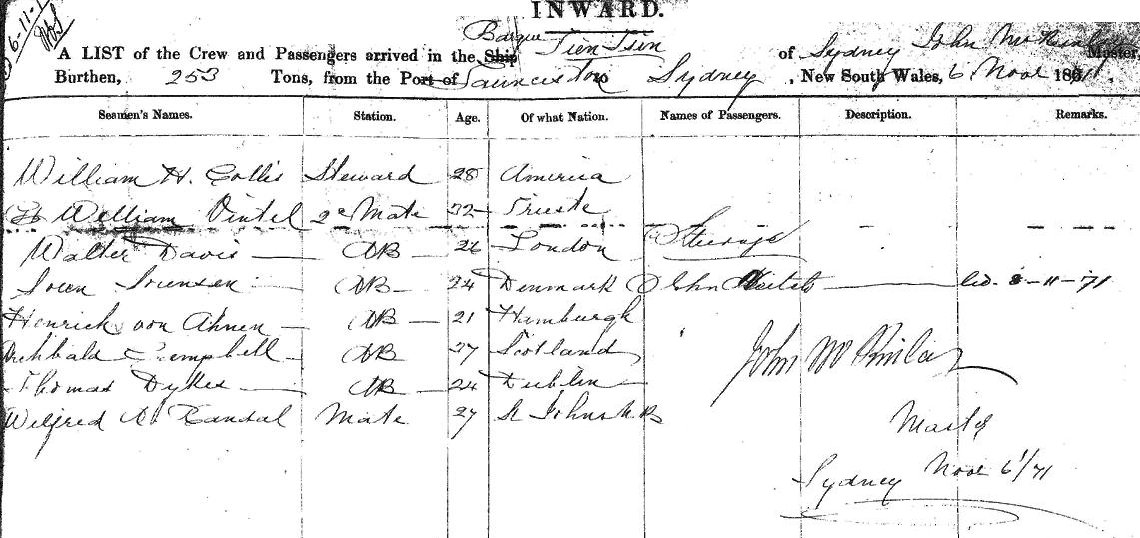 INWARD.
6-11-
Barque Tien Tsin
A LIST of the Crew and Passengers arrived in the Ship of Sydney John McKinlay Master,
Burthen, 253 Tons, from the Port of Launceston to Sydney, New South Wales, 6 Novr 1871
Seamen's Names. Station. Age. Of what Nation. Names of Passengers. Description. Remarks.
William H. Collis Steward 28 America
William Vintel 2e Mate 32 Trieste
Walter Davis AB 26 London Steerage
Soren Sorensen AB 24 Denmark John 8-11-71
Henrick von Ahnen AB 21 Hamburgh
Archbald Campbell AB 27 Scotland John McKinlay
Thomas Dykes AB 24 Dublin
Wilfred A. Randal Mate 27 St Johns N.B Master
Sydney Novr 6/71